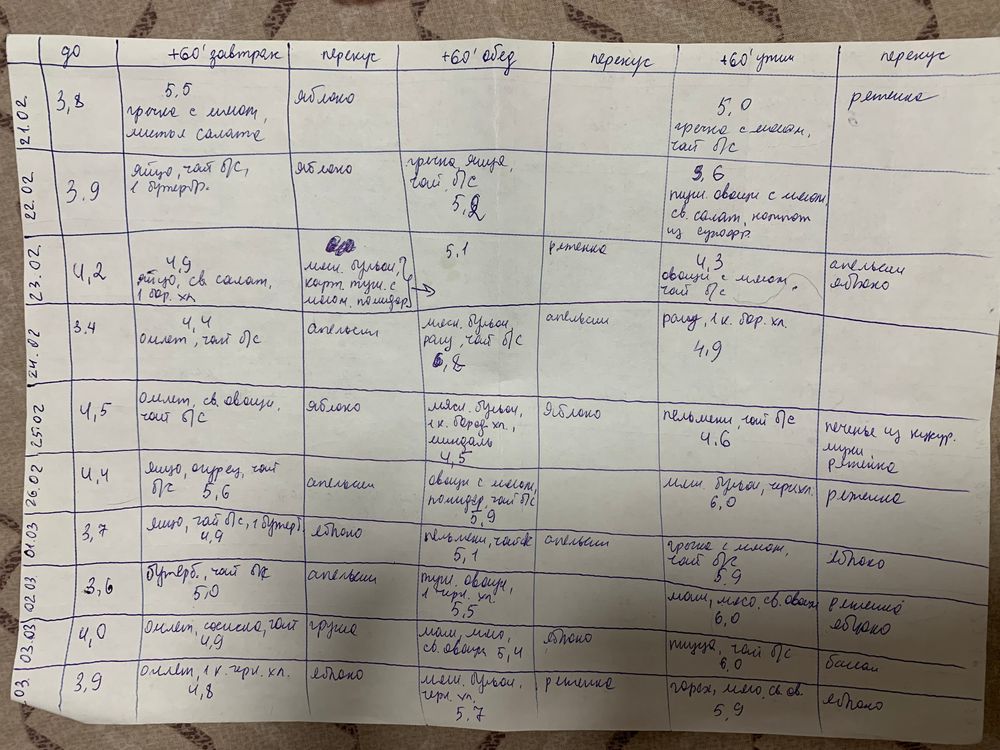 до +60' завтрак перекус +60' обед перекус +60' ужин перекус
21.02.
3,8
5,5
гречка с мясом,
листья салата
яблоко
5,0
гречка с мясом,
чай б/с
ряженка
22.02
3,9
яйцо, чай б/с,
1 бутербр.
яблоко
гречка, яйца,
чай б/с
5,2
5,6
туш. овощи с мясом,
св. салат, компот
из сухофр.
23.02.
4,2
4,9
яйцо, св. салат,
1 бор. хл.
мясн. бульон,
карт. туш. с
мясом, помидор
5,1
ряженка
4,3
овощи с мясом,
чай б/с
апельсин
яблоко
24.02
3.4
4,4
омлет, чай б/с
апельсин
мясн. бульон,
рагу, чай б/с
6,2
апельсин
рагу, 1 к. бор. хл.
4,9
25.02
4,5
омлет, св. овощи,
чай б/с
яблоко
мясн. бульон,
1 к. бород. хл.,
миндаль
4,5
яблоко
пельмени, чай б/с
4,6
печенье из кукур.
муки
ряженка
26.02.
4,4
яйцо, огурец, чай
б/с 5,6
апельсин
овощи с мясом,
помидор, чай б/с
5,9
мясн. бульон, черн. хл.
6,0
ряженка
01.03
3,7
яйцо, чай б/с, 1 бутерб.
4,9
яблоко
пельмени, чай б/с
5,1
апельсин
гречка с мясом,
чай б/с
5,9
яблоко
02.03.
3,6
бутерб., чай б/с
5,0
апельсин
туш. овощи,
1 черн. хл.
5,5
маш, мясо, св. овощи
6,0
ряженка
яблоко
03.03
4,0
омлет, сосиска, чай
4,9
груша
маш, мясо,
св. овощи 5,4
яблоко
пицца, чай б/с
6,0
банан
03.
3,9
омлет, 1 к. черн. хл.
4,8
яблоко
мясн. бульон,
черн. хл.
5,7
ряженка
горох, мясо, св. ов.
5,9
яблоко